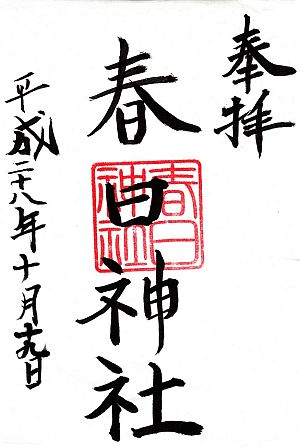 奉拝
春日神社
春日神社
平成二十八年十月十九日